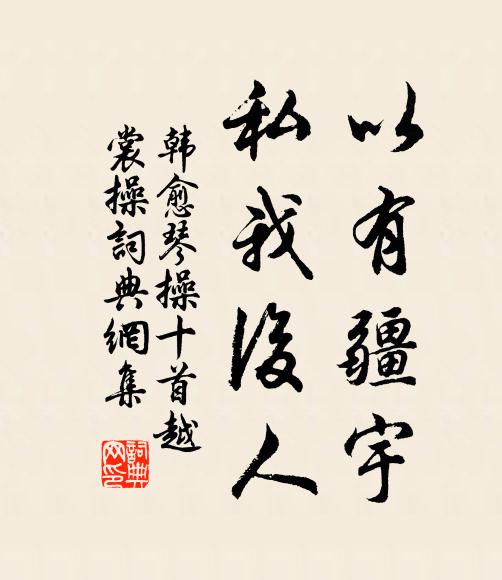 以有疆宇
私我後人
韩愈琴操十首越
裳操詞典網集
詞典网印